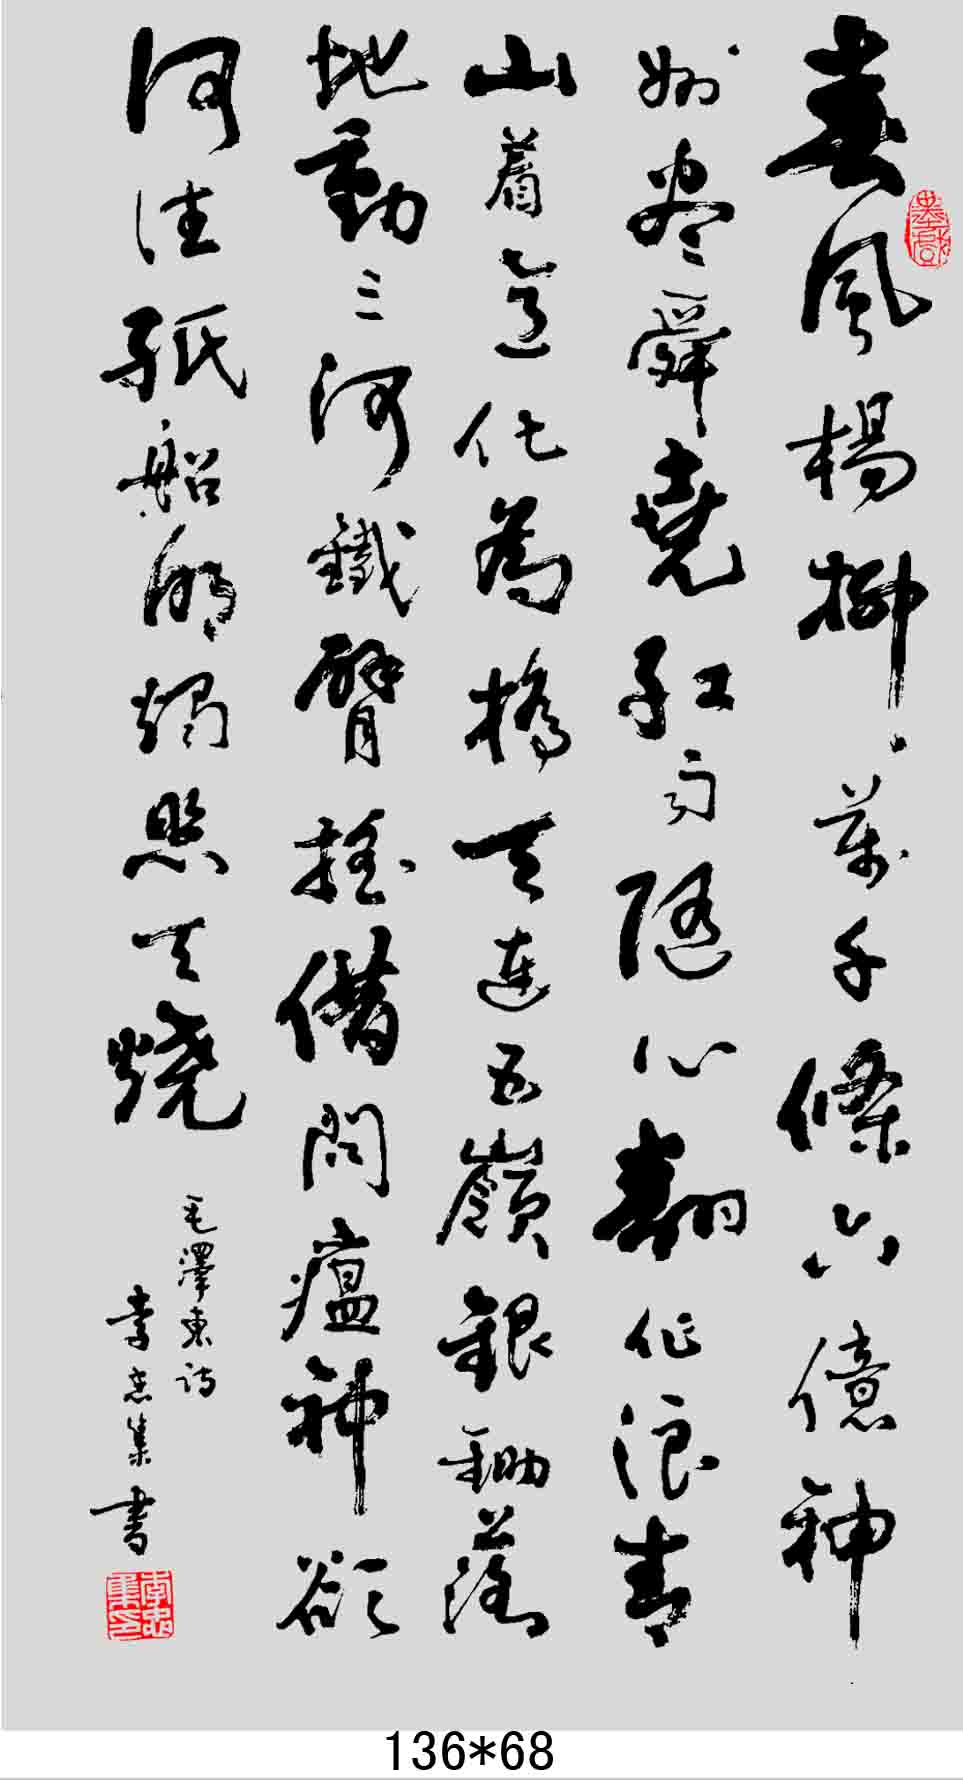 春風楊柳萬千條六億神
州盡舜堯紅雨隨心翻作浪青
山着意化為橋天連五嶺銀鋤落
地動三河鐵臂搖借問瘟神欲
何往紙船明燭照天燒
毛澤東詩
李忠集書
李忠集印
墨戲
136*68